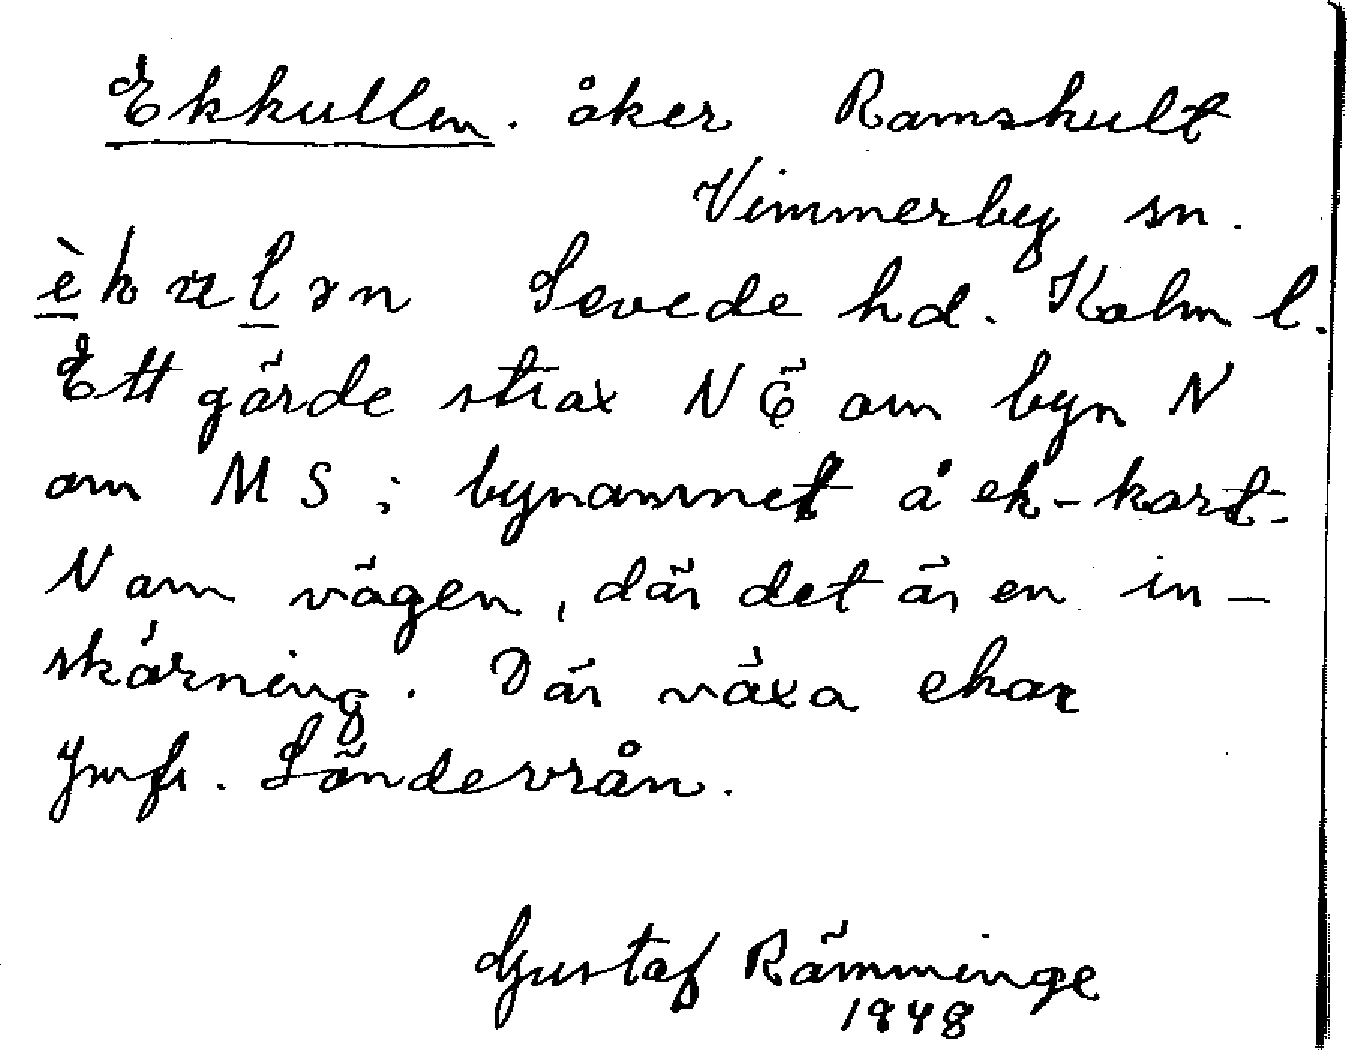 Ekkullen. åker Ramshult
Vimmerby sn.
èkulən Sevede hd. Kalm l.
Ett gärde strax NÖ om byn N
om MS i bynamnet å ek-kart.
N om vägen, där det är en in-
skärning. Där växa ekar
Jmfr. Söndervrån.
Gustaf Rämminge
1948